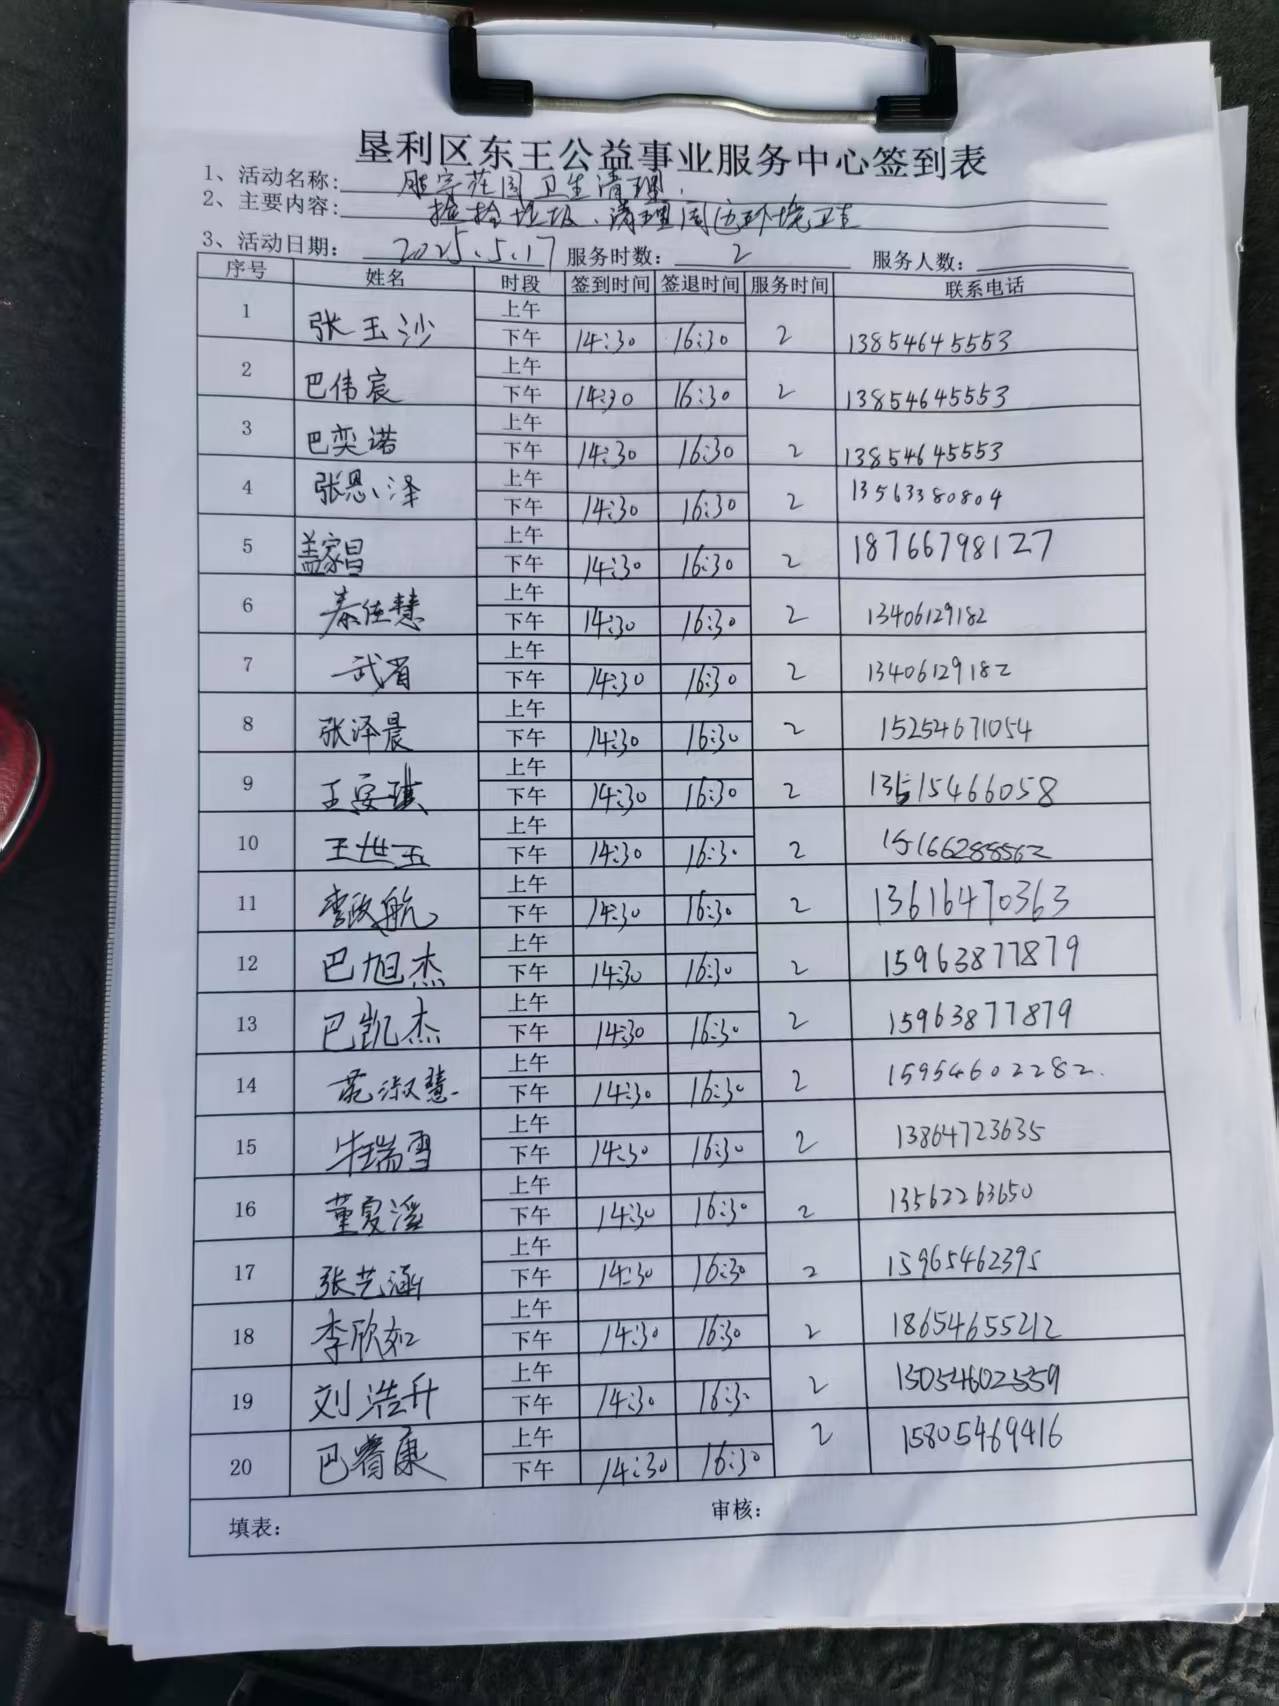 垦利区东王公益事业服务中心签到表
1、活动名称: 卫生清理
2、主要内容: 捡拾垃圾、清理周边环境卫生
3、活动日期: 2025.5.17 服务时数: 2 服务人数:
序号 姓名 时段 签到时间 签退时间 服务时间 联系电话
1 张玉沙 上午
下午 14:30 16:30 2 13854645553
2 巴伟宸 上午
下午 14:30 16:30 2 13854645553
3 巴奕诺 上午
下午 14:30 16:30 2 13854645553
4 张恩泽 上午
下午 14:30 16:30 2 13563380804
5 盖家昌 上午
下午 14:30 16:30 2 18766798127
6 秦佳慧 上午
下午 14:30 16:30 2 13406129182
7 武省 上午
下午 14:30 16:30 2 13406129182
8 张泽晨 上午
下午 14:30 16:30 2 15254671054
9 王安琪 上午
下午 14:30 16:30 2 13515466058
10 王世玉 上午
下午 14:30 16:30 2 15166288562
11 李政航 上午
下午 14:30 16:30 2 13616470363
12 巴旭杰 上午
下午 14:30 16:30 2 15963877879
13 巴凯杰 上午
下午 14:30 16:30 2 15963877879
14 范淑慧 上午
下午 14:30 16:30 2 15954602282
15 牛瑞雪 上午
下午 14:30 16:30 2 13864723635
16 董夏溪 上午
下午 14:30 16:30 2 13562263650
17 张艺涵 上午
下午 14:30 16:30 2 15965462395
18 李欣如 上午
下午 14:30 16:30 2 18654655212
19 刘浩升 上午
下午 14:30 16:30 2 13054602559
20 巴睿康 上午
下午 14:30 16:30 2 15805469416
填表: 审核: